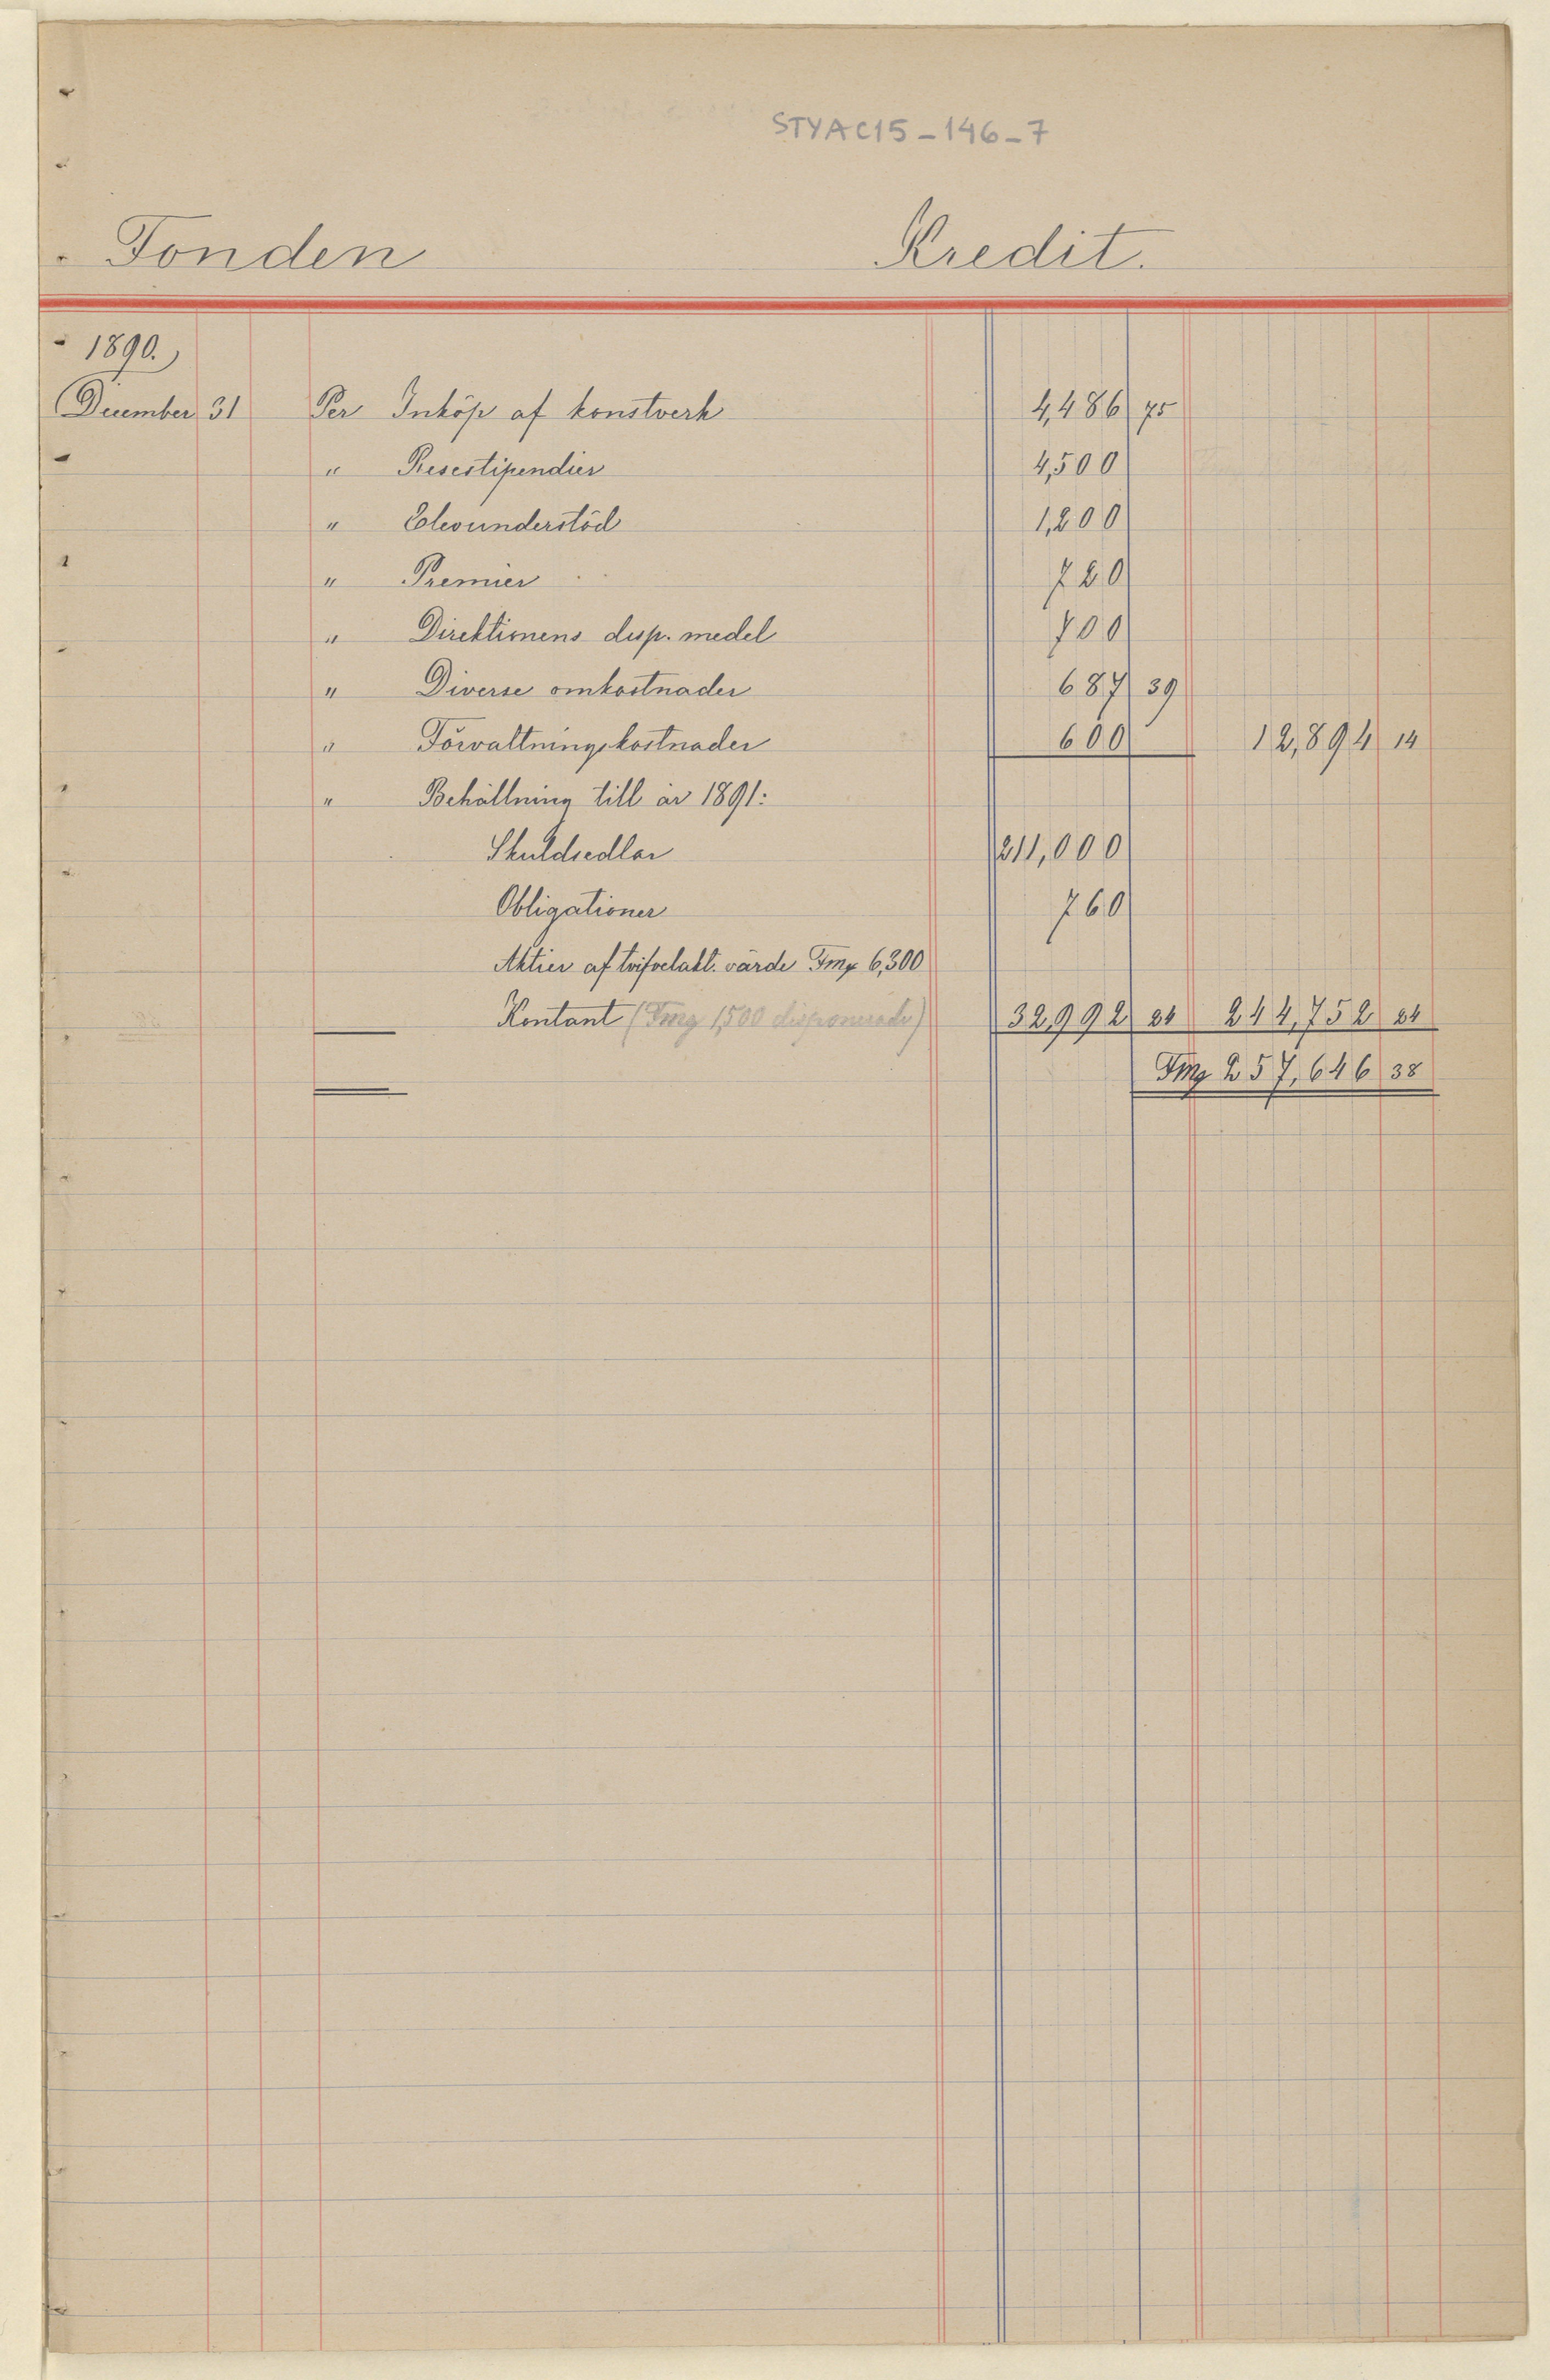 STYAC15-146-7
Fonden Kredit.
1890.
December 31 Per Inköp af konstverk 4,486 75
" Resestipendier 4,500
" Elevunderstöd 1,200
" Premier 720
" Direktionens disp. medel 700
" Diverse omkostnader 687 39
" Förvaltningskostnader 600 12,894 14
" Behållning till år 1891:
Skuldsedlar 211,000
Obligationer 760
Aktier af tvifvelakt. värde Fmg 6,300
Kontant (Fmg 1,500 disponerade) 32,992 24 244,752 24
Fmg 257,646 38